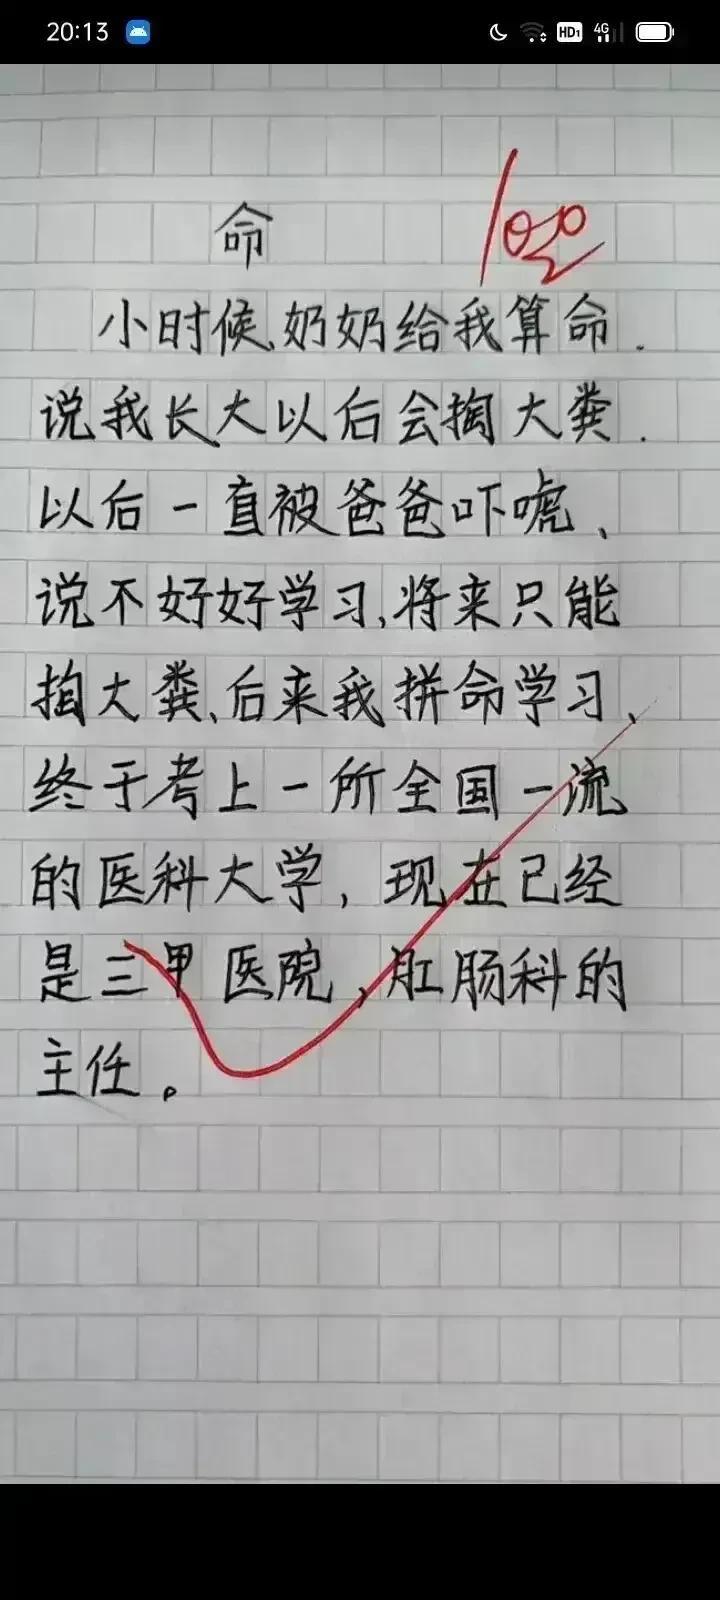 20:13
HD1
4G
命
100
小时候、奶奶给我算命.
说我长大以后会掏大粪.
以后一直被爸爸吓唬、
说不好好学习,将来只能
掏大粪、后来我拼命学习、
终于考上一所全国一流
的医科大学,现在已经
是三甲医院,肛肠科的
主任。